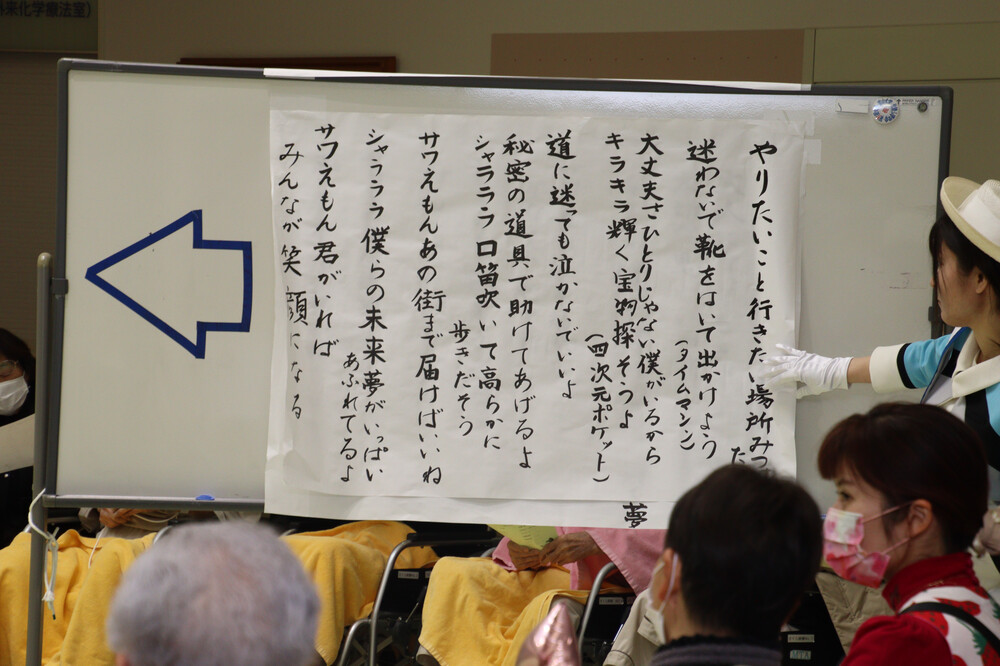 来化学療法室)
やりたいこと行きたい場所みつ
た
迷わないで靴をはいて出かけよう
(タイムマシン)
大丈夫さひとりじゃない僕がいるから
キラキラ輝く宝物探そうよ
(四次元ポケット)
道に迷っても泣かないでいいよ
秘密の道具で助けてあげるよ
シャラララ口笛吹いて高らかに
歩きだそう
サワえもんあの街まで届けばいいね
シャラララ僕らの未来夢がいっぱい
あふれてるよ
サワえもん君がいれば
みんなが笑顔になる
夢